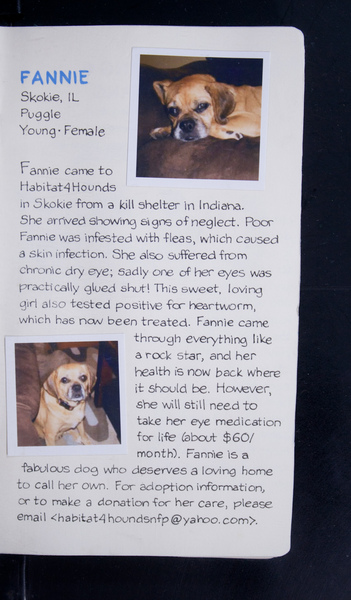 FANNIE
Skokie, IL
Puggle
Young · Female
Fannie came to
Habitat4Hounds
in Skokie from a kill shelter in Indiana.
She arrived showing signs of neglect. Poor
Fannie was infested with fleas, which caused
a skin infection. She also suffered from
chronic dry eye; sadly one of her eyes was
practically glued shut! This sweet, loving
girl also tested positive for heartworm,
which has now been treated. Fannie came
through everything like
a rock star, and her
health is now back where
it should be. However,
she will still need to
take her eye medication
for life (about $60/
month). Fannie is a
fabulous dog who deserves a loving home
to call her own. For adoption information,
or to make a donation for her care, please
email <habitat4houndsnfp@yahoo.com>.